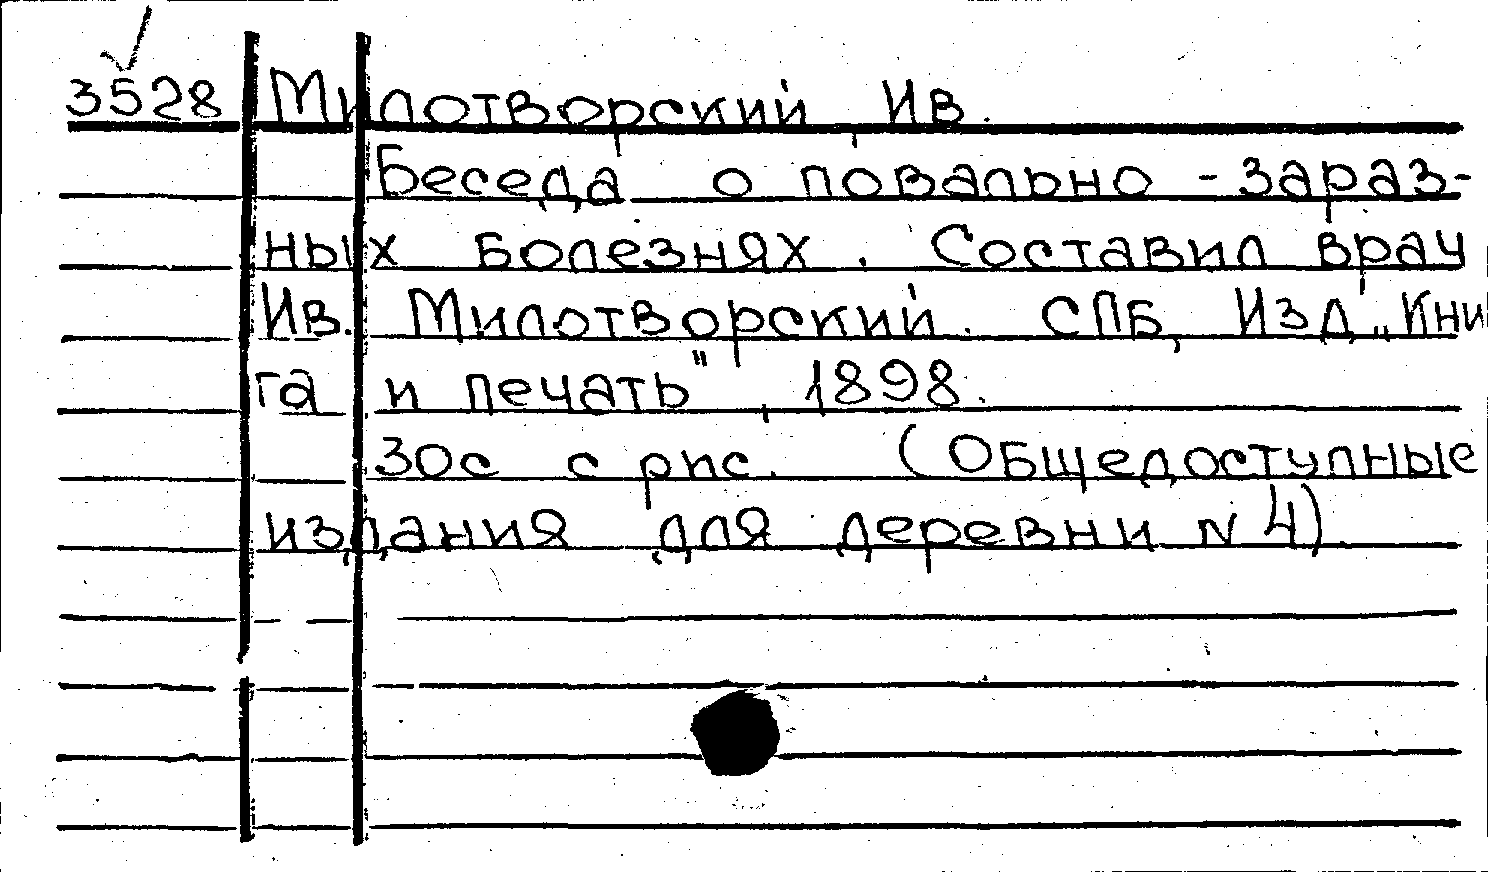 3528 Милотворский, Ив.
Беседа о повально-зараз-
ных болезнях. Составил врач
Ив. Милотворский. СПБ, Изд „Кни
га и печать", 1898.
30с с рис. (Общедоступные
издания для деревни N 4).